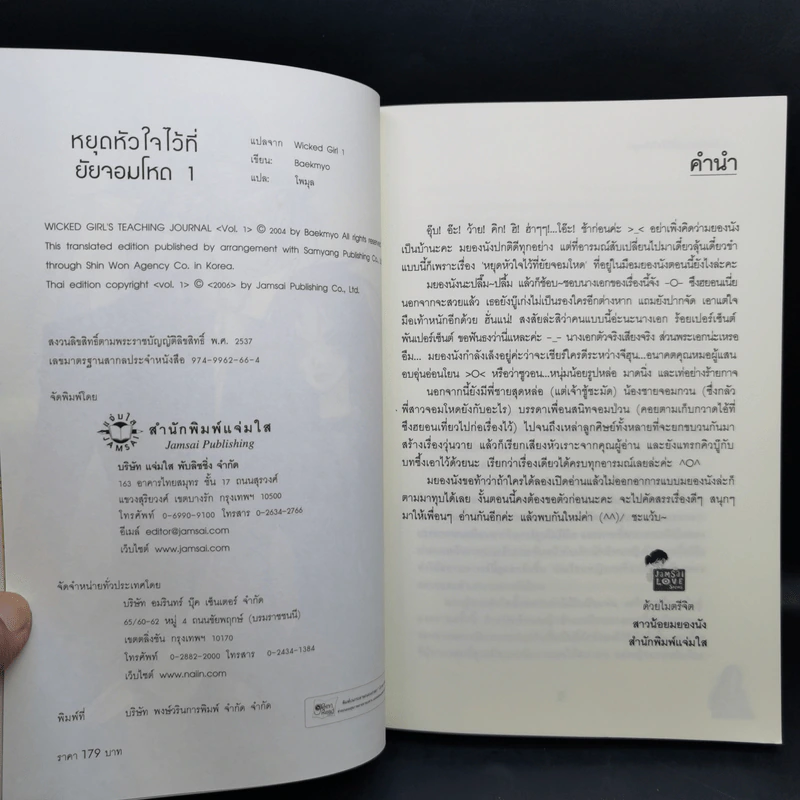 หยุดหัวใจไว้ที่
ยัยจอมโหด 1
แปลจาก Wicked Girl 1
เขียน: Baekmyo
แปล: ไพมุล
WICKED GIRL'S TEACHING JOURNAL <Vol. 1> © 2004 by Baekmyo All rights reserved
This translated edition published by arrangement with Samyang Publishing Co.,
through Shin Won Agency Co. in Korea.
Thai edition copyright <vol. 1> © <2006> by Jamsai Publishing Co., Ltd.
สงวนลิขสิทธิ์ตามพระราชบัญญัติลิขสิทธิ์ พ.ศ. 2537
เลขมาตรฐานสากลประจำหนังสือ 974-9962-66-4
จัดพิมพ์โดย
แจ่มใส
JAMSAI
สำนักพิมพ์แจ่มใส
Jamsai Publishing
บริษัท แจ่มใส พับลิชชิ่ง จำกัด
163 อาคารไทยสมุทร ชั้น 17 ถนนสุรวงศ์
แขวงสุริยวงศ์ เขตบางรัก กรุงเทพฯ 10500
โทรศัพท์ 0-6990-9100 โทรสาร 0-2634-2766
อีเมล์ editor@jamsai.com
เว็บไซต์ www.jamsai.com
จัดจำหน่ายทั่วประเทศโดย
บริษัท อมรินทร์ บุ๊ค เซ็นเตอร์ จำกัด
65/60-62 หมู่ 4 ถนนชัยพฤกษ์ (บรมราชชนนี)
เขตตลิ่งชัน กรุงเทพฯ 10170
โทรศัพท์ 0-2882-2000 โทรสาร 0-2434-1384
เว็บไซต์ www.naiin.com
พิมพ์ที่ บริษัท พงษ์วรินการพิมพ์ จำกัด จำกัด
ราคา 179 บาท
คำนำ
อุ๊บ! อ๊ะ! ว้าย! คิก! ฮิ! ฮ่าๆๆ!...โอ๊ะ! ช้าก่อนค่ะ >_< อย่าเพิ่งคิดว่ามยองนัง
เป็นบ้านะคะ มยองนังปกติดีทุกอย่าง แต่ที่อารมณ์สับเปลี่ยนไปมาเดี๋ยวลุ้นเดี๋ยวขำ
แบบนี้ก็เพราะเรื่อง 'หยุดหัวใจไว้ที่ยัยจอมโหด' ที่อยู่ในมือมยองนังตอนนี้ยังไงล่ะคะ
มยองนังนะปลื้ม~ปลื้ม แล้วก็ช้อบ~ชอบนางเอกของเรื่องนี้จัง -O- ซึ่งฮยอนเนี่ย
นอกจากจะสวยแล้ว เธอยังบู๊เก่งไม่เป็นรองใครอีกต่างหาก แถมยังปากจัด เอาแต่ใจ
มือเท้าหนักอีกด้วย ฮั่นแน่! สงสัยล่ะสิว่าคนแบบนี้อ่ะนะนางเอก ร้อยเปอร์เซ็นต์
พันเปอร์เซ็นต์ ขอฟันธงว่านี่แหละค่ะ -_- นางเอกตัวจริงเสียงจริง ส่วนพระเอกน่ะเหรอ
อืม... มยองนังกำลังเล็งอยู่ค่ะว่าจะเชียร์ใครดีระหว่างจีฮุน...อนาคตคุณหมอผู้แสน
อบอุ่นอ่อนโยน >O< หรือว่าชูวอน...หนุ่มน้อยรูปหล่อ มาดนิ่ง และเท่อย่างร้ายกาจ
นอกจากนี้ยังมีพี่ชายสุดหล่อ (แต่เจ้าชู้ชะมัด) น้องชายจอมกวน (ซึ่งกลัว
พี่สาวจอมโหดยังกับอะไร) บรรดาเพื่อนสนิทจอมป่วน (คอยตามเก็บกวาดไอ้ที่
ซึ่งฮยอนเที่ยวไปก่อเรื่องไว้) ไปจนถึงเหล่าลูกศิษย์ทั้งหลายที่จะยกขบวนกันมา
สร้างเรื่องวุ่นวาย แล้วก็เรียกเสียงหัวเราะจากคุณผู้อ่าน และยังแทรกคิวบู๊กับ
บทซึ้งเอาไว้ด้วยนะ เรียกว่าเรื่องเดียวได้ครบทุกอารมณ์เลยล่ะค่ะ ^O^
มยองนังขอท้าว่าถ้าใครได้ลองเปิดอ่านแล้วไม่ออกอาการแบบมยองนังล่ะก็
ตามมาทุบได้เลย งั้นตอนนี้คงต้องขอตัวก่อนนะคะ จะไปคัดสรรเรื่องดีๆ สนุกๆ
มาให้เพื่อนๆ อ่านกันอีกค่ะ แล้วพบกันใหม่ค่า (^^)/ ชะแว้บ~
JAMSAI
LOVE
ด้วยไมตรีจิต
สาวน้อยมยองนัง
สำนักพิมพ์แจ่มใส